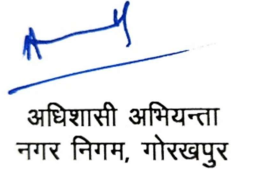 अधिशासी अभियन्ता
नगर निगम, गोरखपुर